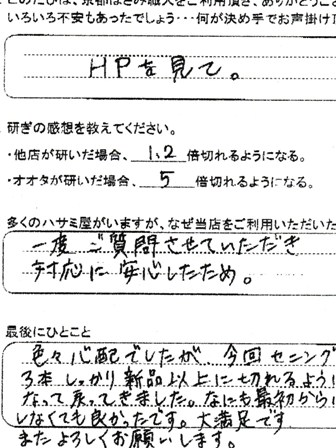 このたびは、京都はさみ職人をご利用頂き、ありがとうござ
いろいろ不安もあったでしょう・・・何が決め手でお声掛け
HPを見て。
研ぎの感想を教えてください。
・他店が研いだ場合、1.2倍切れるようになる。
・オオタが研いだ場合、5倍切れるようになる。
多くのハサミ屋がいますが、なぜ当店をご利用いただいた
一度ご質問させていただき
対応に安心したため。
最後にひとこと
色々心配でしたが 今回セニング
3本しっかり新品以上に切れるよう
なって戻ってきました。なにも最初から
しなくても良かったです。大満足です
またよろしくお願いします。